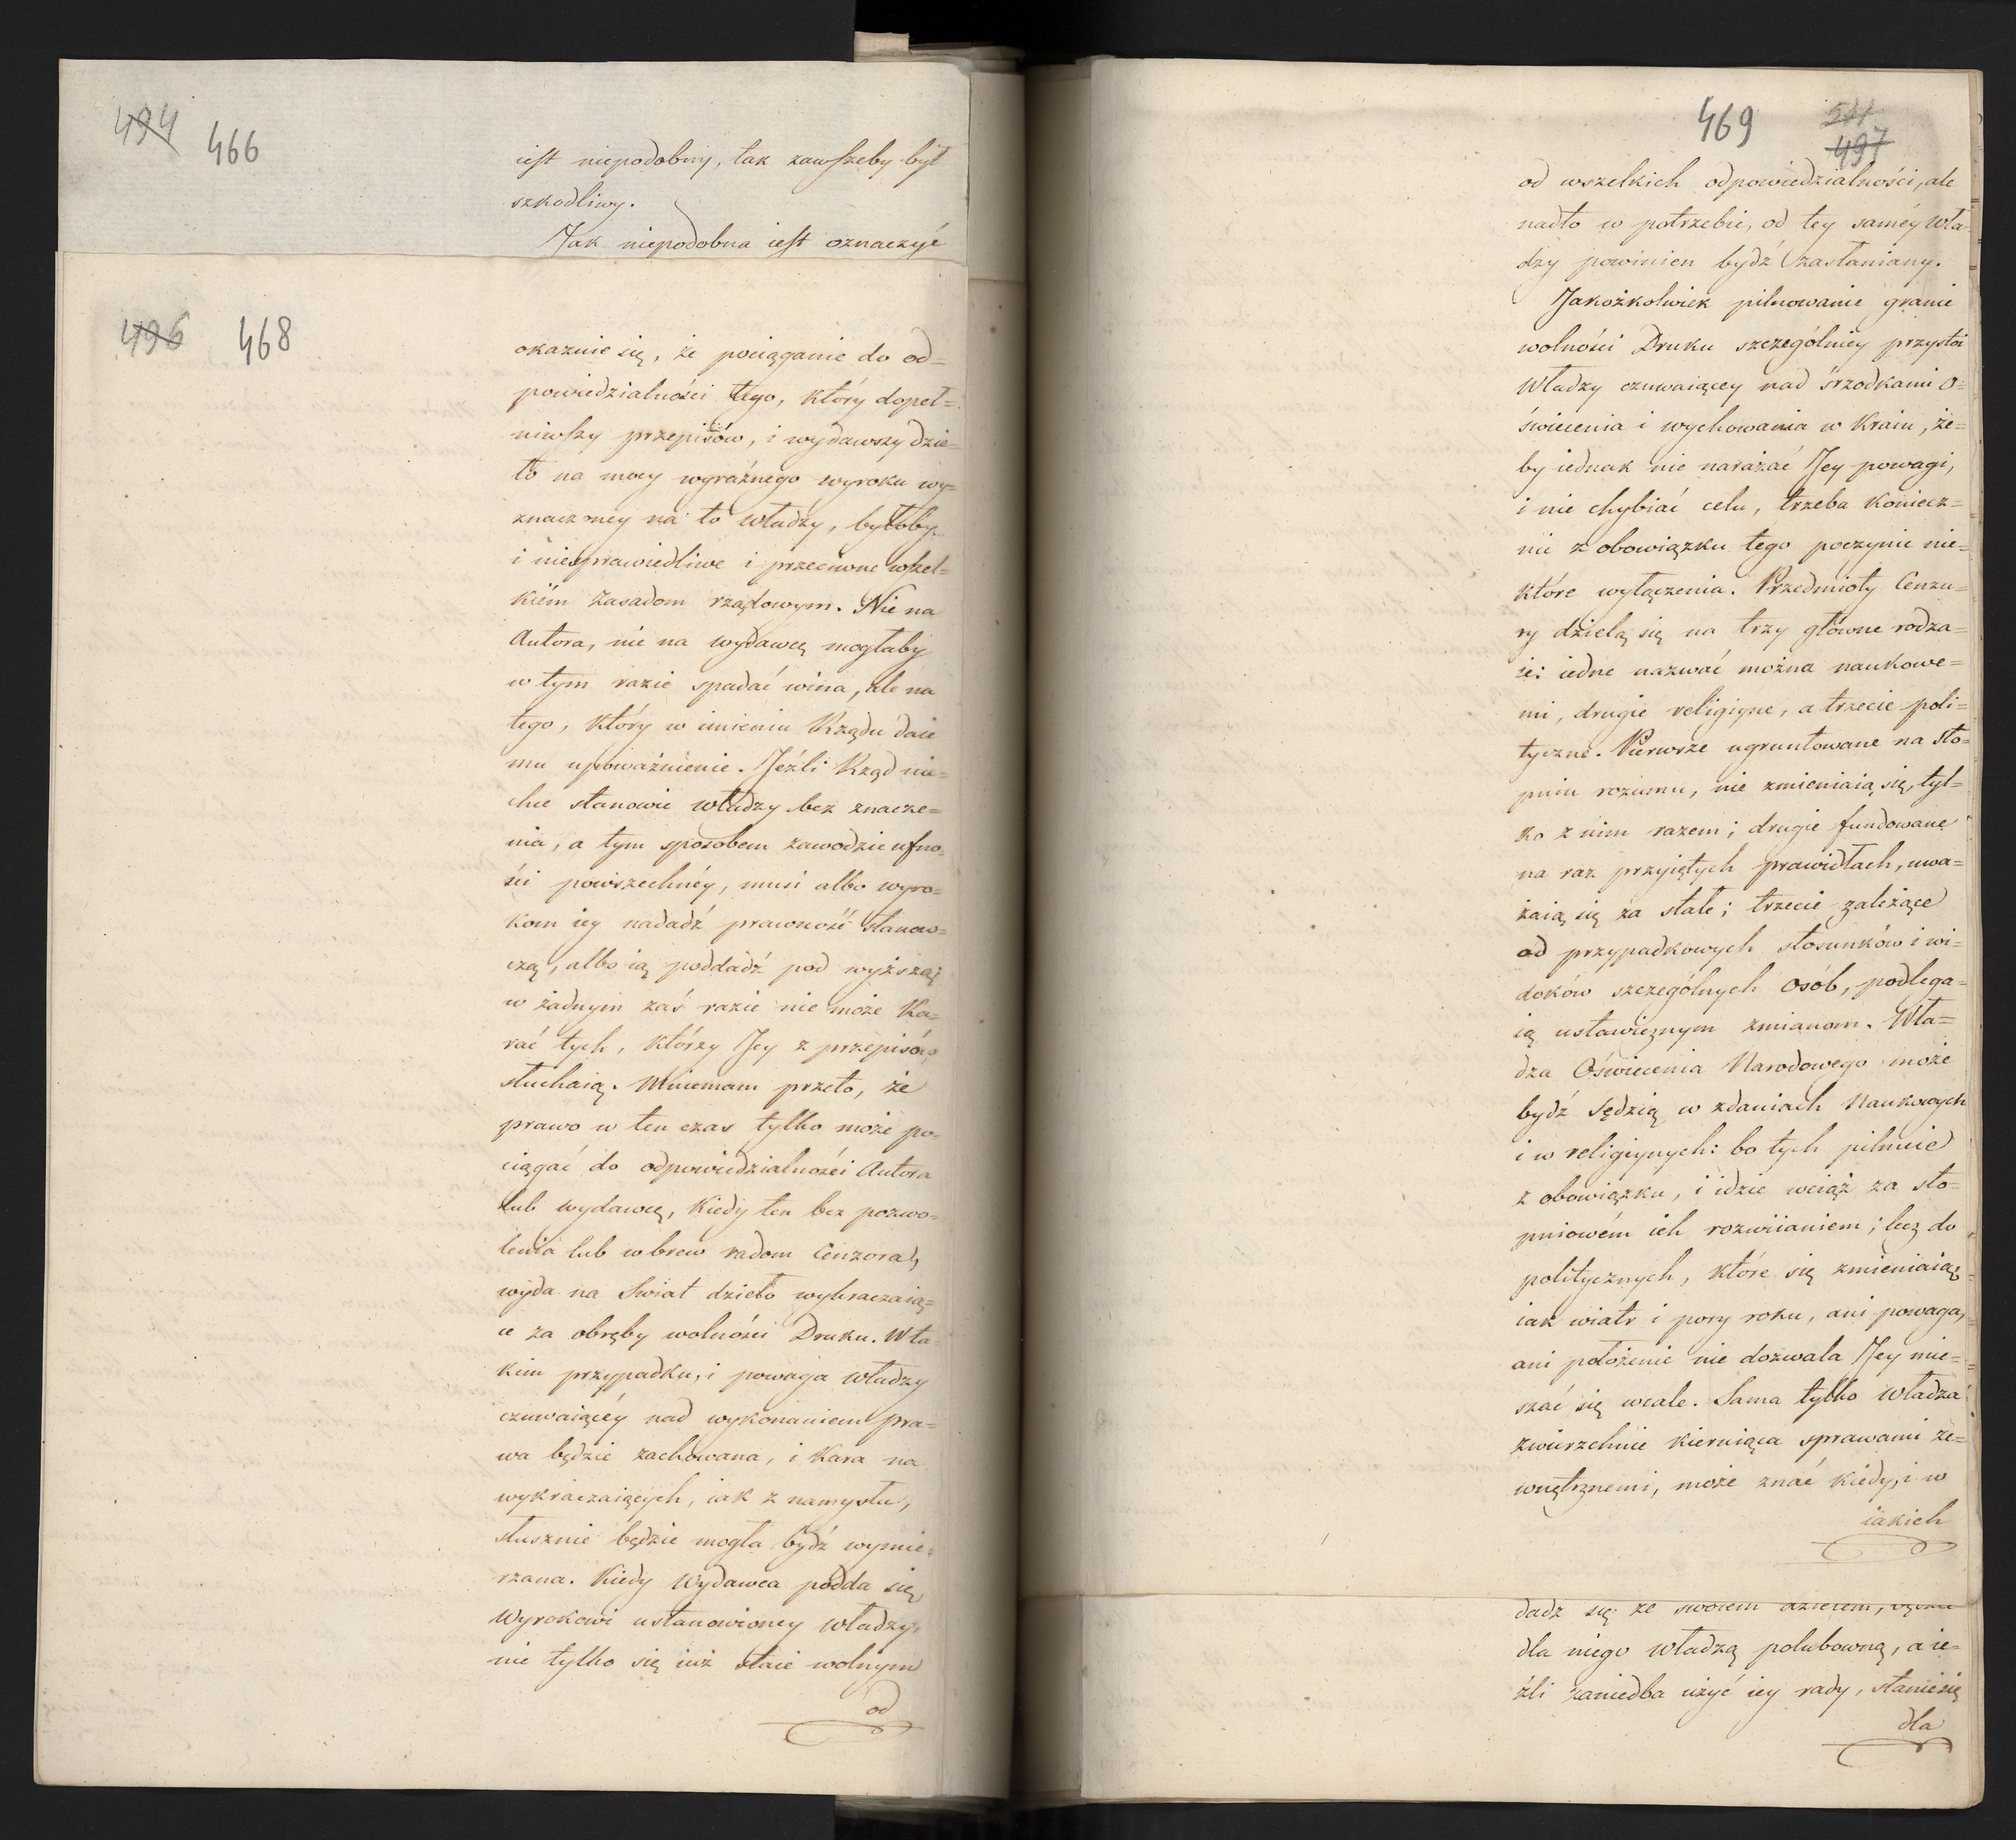 494 466
iest niepodobny, tak zawszeby był
szkodliwy.
Jak niepodobna iest oznaczyć
496 468
okazuie się, że pociąganie do od=
powiedzialności tego, który dopeł=
niwszy przepisów, i wydawszy dzie=
ło na mocy wyraźnego wyroku wy=
znaczoney na to władzy, byłoby
i niesprawiedliwe i przeciwne wszel=
kiém zasadom rządowym. Nie na
Autora, nie na wydawcę mogłaby
w tym razie spadać wina, ale na
tego, który w imieniu Rządu daie
mu upoważnienie. Jeźli Rząd nie=
chce stanowić władzy bez znacze=
nia, a tym sposobem zawodzić ufno=
ści powszechnéy, musi albo wyro=
kom iey nadadź prawność stanow=
czą, albo ią poddadź pod wyższą;
w żadnym zaś razie nie może ka=
rać tych, którzy Jey z przepisów
słuchaią. Mniemam przeto, że
prawo w ten czas tylko może po=
ciągać do odpowiedzialności Autora
lub wydawcę, kiedy ten bez pozwo=
lenia lub wbrew radom Cenzora,
wyda na Swiat dzieło wykraczaią=
ce za obręby wolności Druku. W ta=
kim przypadku, i powaga władzy
czuwaiącéy nad wykonaniem pra=
wa będzie zachowana, i kara na
wykraczaiących, iak z namysłu,
słusznie będzie mogła bydź wymie=
rzana. Kiedy Wydawca podda się
Wyrokowi ustanowioney władzy,
nie tylko się iuż staie wolnym
od
469 497
od wszelkich odpowiedzialności, ale
nadto w potrzebie, od tey saméy Wła=
dzy powinien bydź zasłaniany.
Jakożkolwiek pilnowanie granic
wolności Druku szczególniey przystoi
Władzy czuwaiącey nad śrzodkami O=
świecenia i wychowania w Kraiu, że=
by iednak nie narażać Jey powagi,
i nie chybiać celu, trzeba koniecz=
nie z obowiązku tego poczynić nie=
które wyłączenia. Przedmioty Cenzu=
ry dzielą się na trzy główne rodza=
ie: iedne nazwać można naukowe=
mi, drugie religiyne, a trzecie poli=
tyczne. Pierwsze ugruntowane na sto=
pniu rozumu, nie zmieniaią się, tyl=
ko z nim razem; drugie fundowane
na raz przyiętych prawidłach, uwa=
żaią się za stałe; trzecie zależące
od przypadkowych stosunków i wi=
doków szczególnych osób, podlega=
ią ustawicznym zmianom. Wła=
dza Oświecenia Narodowego może
bydź sędzią w zdaniach Naukowych
i w religiynych: bo tych pilnuie
z obowiązku, i idzie wciąż za sto=
pniowém ich rozwiianiem; lecz do
politycznych, które się zmieniaią
iak wiatr i pory roku, ani powaga,
ani położenie nie dozwala Jey mie=
szać się wcale. Sama tylko Władza
zwierzchnie kieruiąca sprawami ze=
wnętrznemi, może znać kiedy, i w
iakich
dadź się ze swoiem dziełem, będzie
dla niego władzą polubowną, a ie=
źli zaniedba użyć iey rady, stanie się
dla